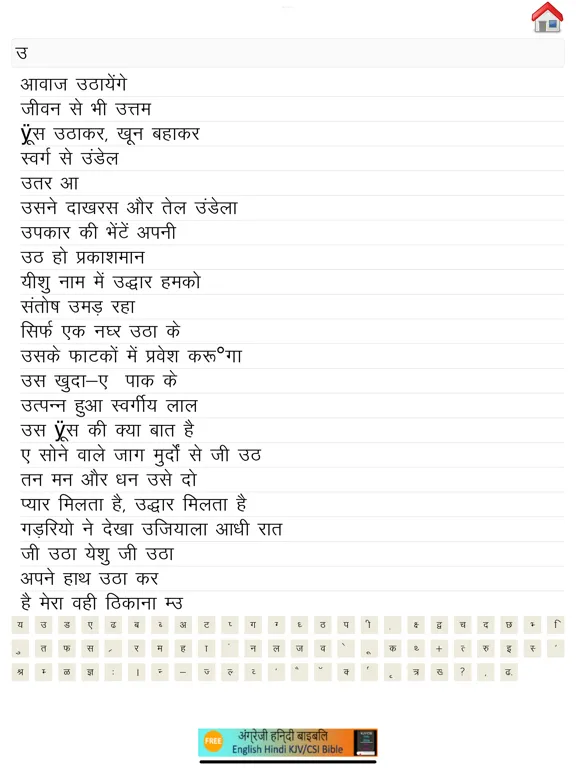 उ
आवाज उठायेंगे
जीवन से भी उत्तम
ÿूस उठाकर, खून बहाकर
स्वर्ग से उंडेल
उतर आ
उसने दाखरस और तेल उंडेला
उपकार की भेंटें अपनी
उठ हो प्रकाशमान
यीशु नाम में उद्धार हमको
संतोष उमड़ रहा
सिर्फ एक नघ्र उठा के
उसके फाटकों में प्रवेश करू°गा
उस खुदा–ए पाक के
उत्पन्न हुआ स्वर्गीय लाल
उस ÿूस की क्या बात है
ए सोने वाले जाग मुर्दों से जी उठ
तन मन और धन उसे दो
प्यार मिलता है, उद्धार मिलता है
गड़रियो ने देखा उजियाला आधी रात
जी उठा येशु जी उठा
अपने हाथ उठा कर
है मेरा वही ठिकाना म्उ
य उ ड ए ढ ब ब् अ ट प् ग ग् ध् ठ प ी . क्ष द्व च द छ भ् ि
ु त फ स र म ह ा ं न ल ज व े ू क थ् + त् रु इ स्
श्र म् ळ ज्ञ ः । न् – ज् ल् व् ' ै ॅ क् ृ त्र ख् ? , ढ़
FREE
अंग्रेजी हिन्दी बाइबलि
English Hindi KJV/CSI Bible